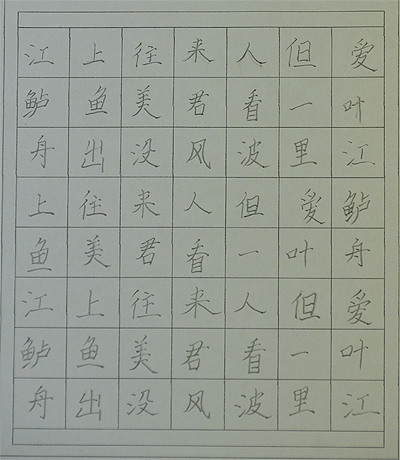 江上往来人但爱
鲈鱼美君看一叶
舟出没风波里江
上往来人但爱鲈
鱼美君看一叶舟
江上往来人但爱
鲈鱼美君看一叶
舟出没风波里江